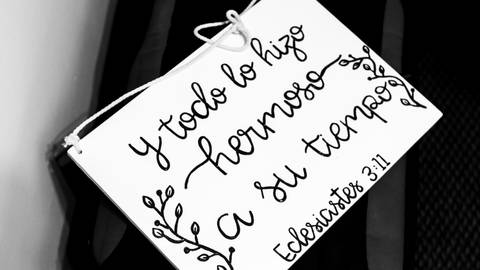 y todo lo hizo
hermoso
a su tiempo
Eclesiastes 3:11